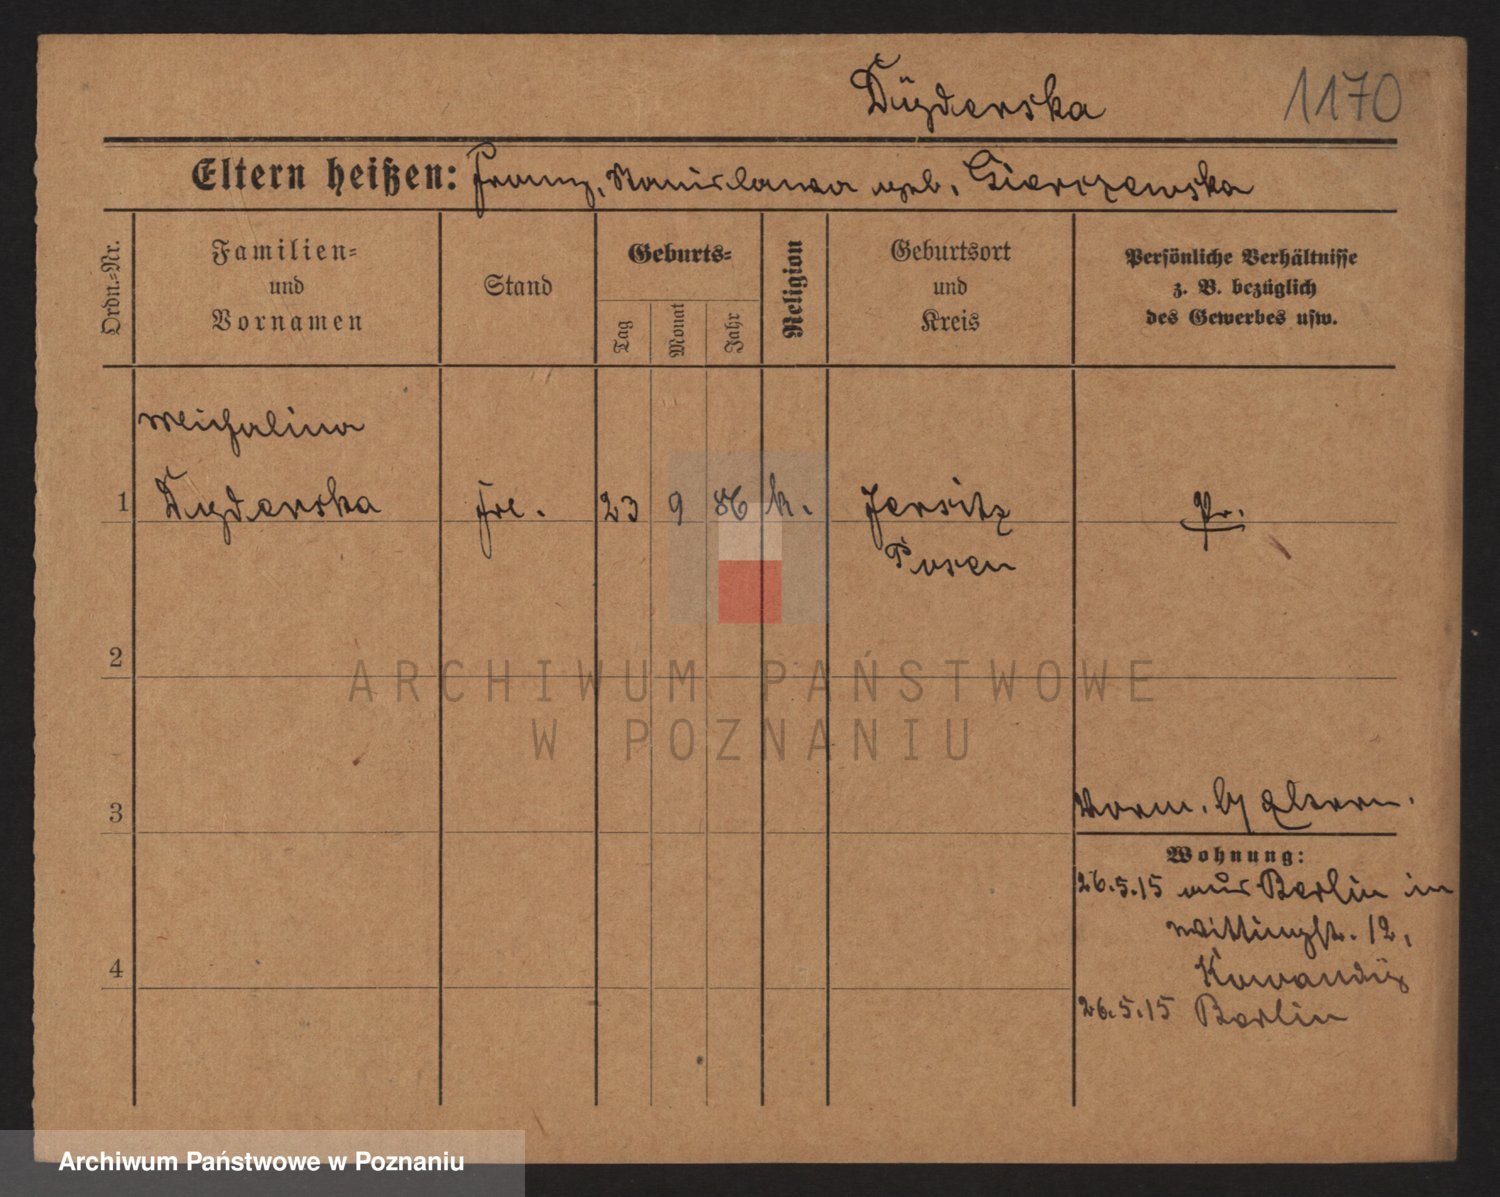 Düzderska
1170
Eltern heißen: Franz, Stanislawa geb. Gierczewska
Ordn.-Nr.
Familien-
und
Vornamen
Stand
Geburts-
Tag
Monat
Jahr
Religion
Geburtsort
und
Kreis
Persönliche Verhältnisse
z. B. bezüglich
des Gewerbes usw.
Michalina
1 Duzderska Frl. 23 9 86 k. Jersitz Pr.
Posen
2
ARCHIWUM PAŃSTWOWE
W POZNANIU
3
Vorm. Eltern.
Wohnung:
26.5.15 aus Berlin in
Wittingstr. 12,
4
26.5.15 Berlin
Archiwum Państwowe w Poznaniu